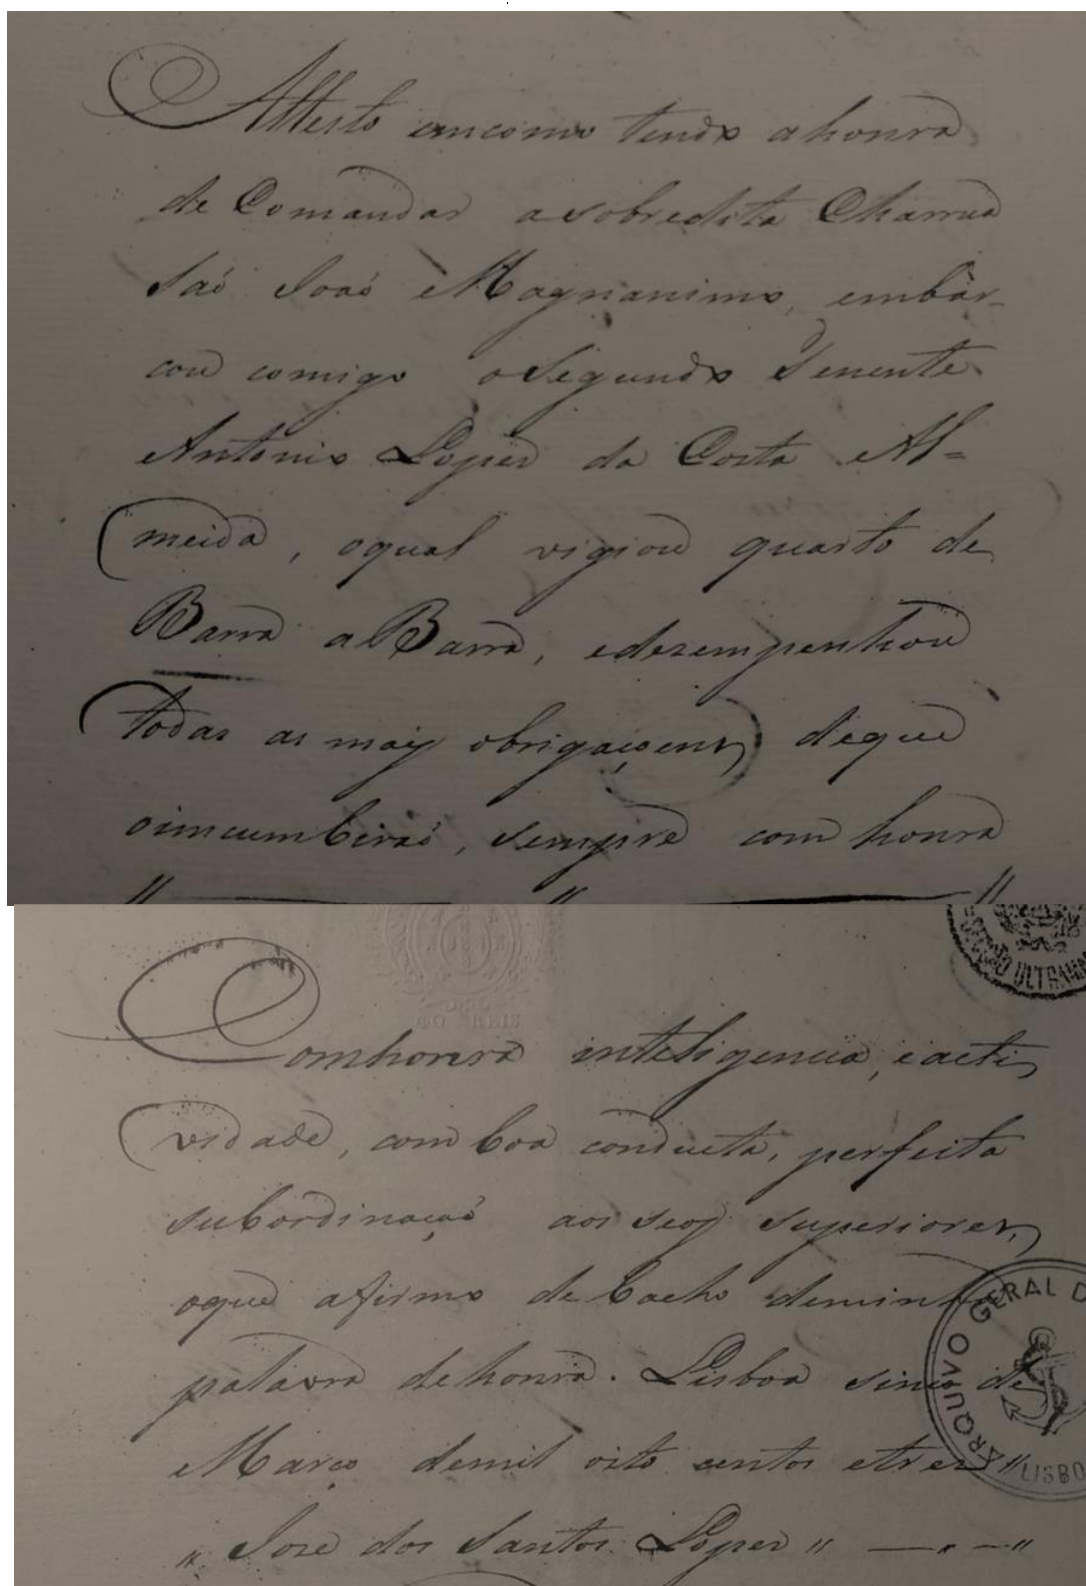 Attesto em como tendo a honra
de Comandar a sobredita Charrua
Saó Joaó Magnanimo, embar-
cou comigo o Segundo Tenente
Antonio Lopes da Costa Al=
meida, oqual vigiou quarto de
Barra a Barra, edezempenhou
todas as mais obrigaçoens, deque
oimcumbiraó, sempre com honra
" " "
Comhonra inteligencia, eacti
vidade, com boa conducta, perfeita
subordinaçaó aos seos superiores,
oque afirmo debacho deminha
palavra dehonra. Lisboa sinco de
Março demil oito centos etres "
" Joze dos Santos Lopes " — " — "
REIS
ULTRAMAR
ARQUIVO GERAL D
LISBO